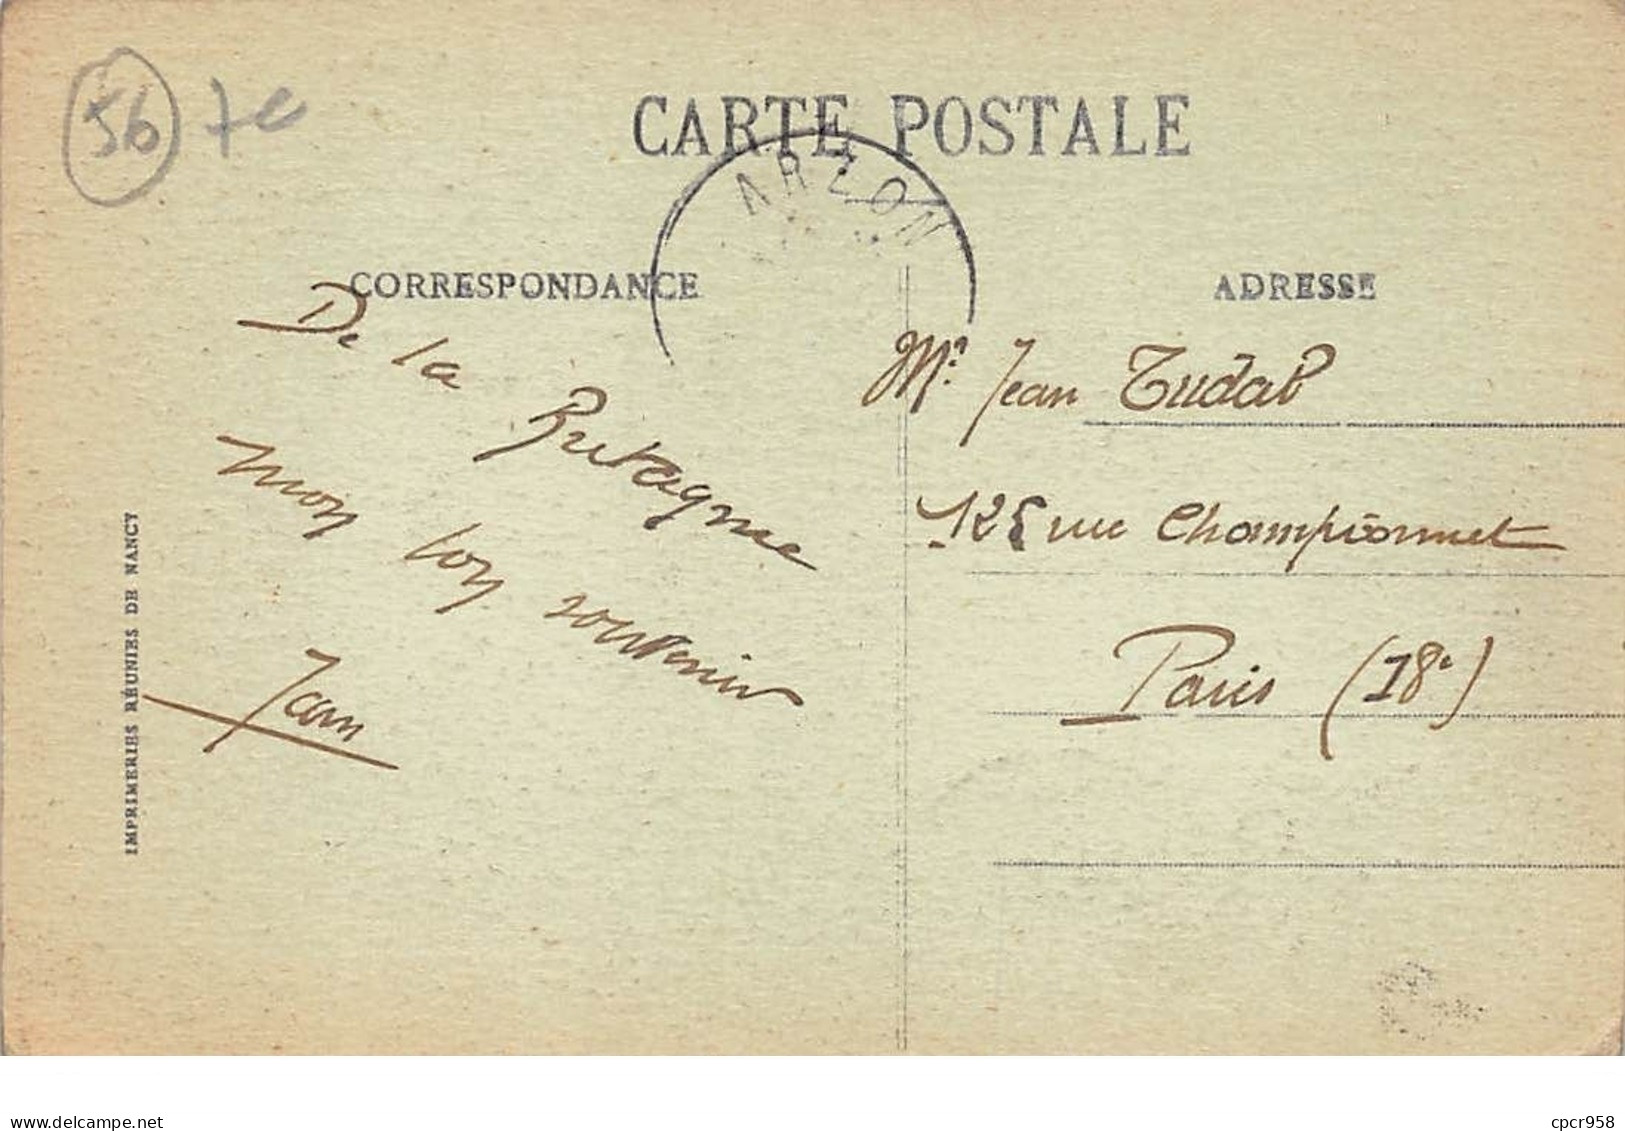 56 7e
CARTE POSTALE
ARZON
CORRESPONDANCE
ADRESSE
De la Bretagne
mon bon souvenir
Jean
Mr. Jean Tudal
125 rue Championnet
Paris (18e)
IMPRIMERIES RÉUNIES DE NANCY
delcampe.net
cpcr958